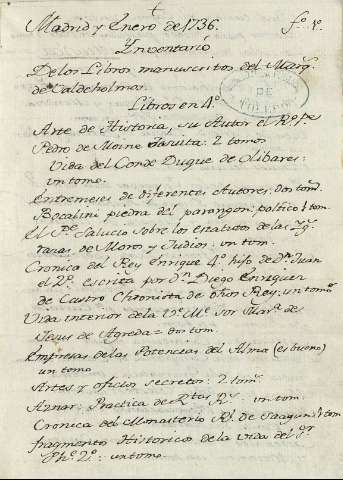 Madrid y Enero de 1736. fo. 1o.
Inventario
De los Libros manuscritos del Marq.
de Valdeholmar.
DE
Libros en 4o.
Arte de Historia, su Autor el Ro. Pe
Pedro de Moine Jasuita: 2 tomos
Vida del Conde Duque de Olibares:
un tomo.
Entremeses de diferentes Autores: dos tom.
Bocalini piedra del parangon politico 1 tom.
El Pe. Salucio sobre los estatutos de las
razas de Moros y Judios: un tom.
Cronica del Rey Enrique 4o. hijo de Dn. Juan
el 2o. escrita por Dn. Diego Enriquez
de Castro Chronista de dhos Rey: un tomo
Vida interior de la Ve. Me. sor Mara. de
Jesus de Agreda = dos tom.
Empresas de las Potencias del Alma (es bueno)
un tomo
Artes y oficios secretos: 2 tom.
Aznar: Practica de Rtas Rs. un tom.
Cronica del Monasterio Rl. de Saagun: 1 tom
fragmento Historico de la vida del Sr.
Phe. 2o.: un tomo.